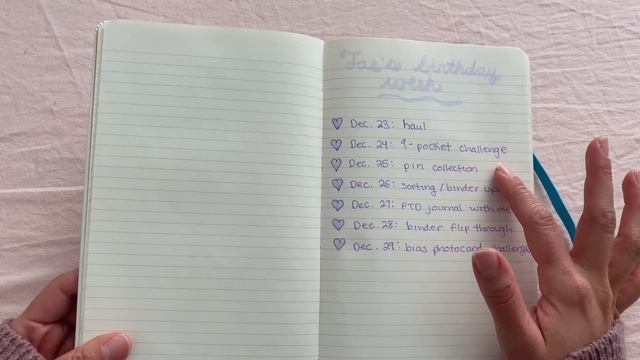 Tae's birthday
week
Dec. 23: haul
Dec. 24: 9-pocket challenge
Dec. 25: pin collection
Dec. 26: sorting/binder
Dec. 27: PTD journal with me
Dec. 28: binder flip through
Dec. 29: bias photocard challenge